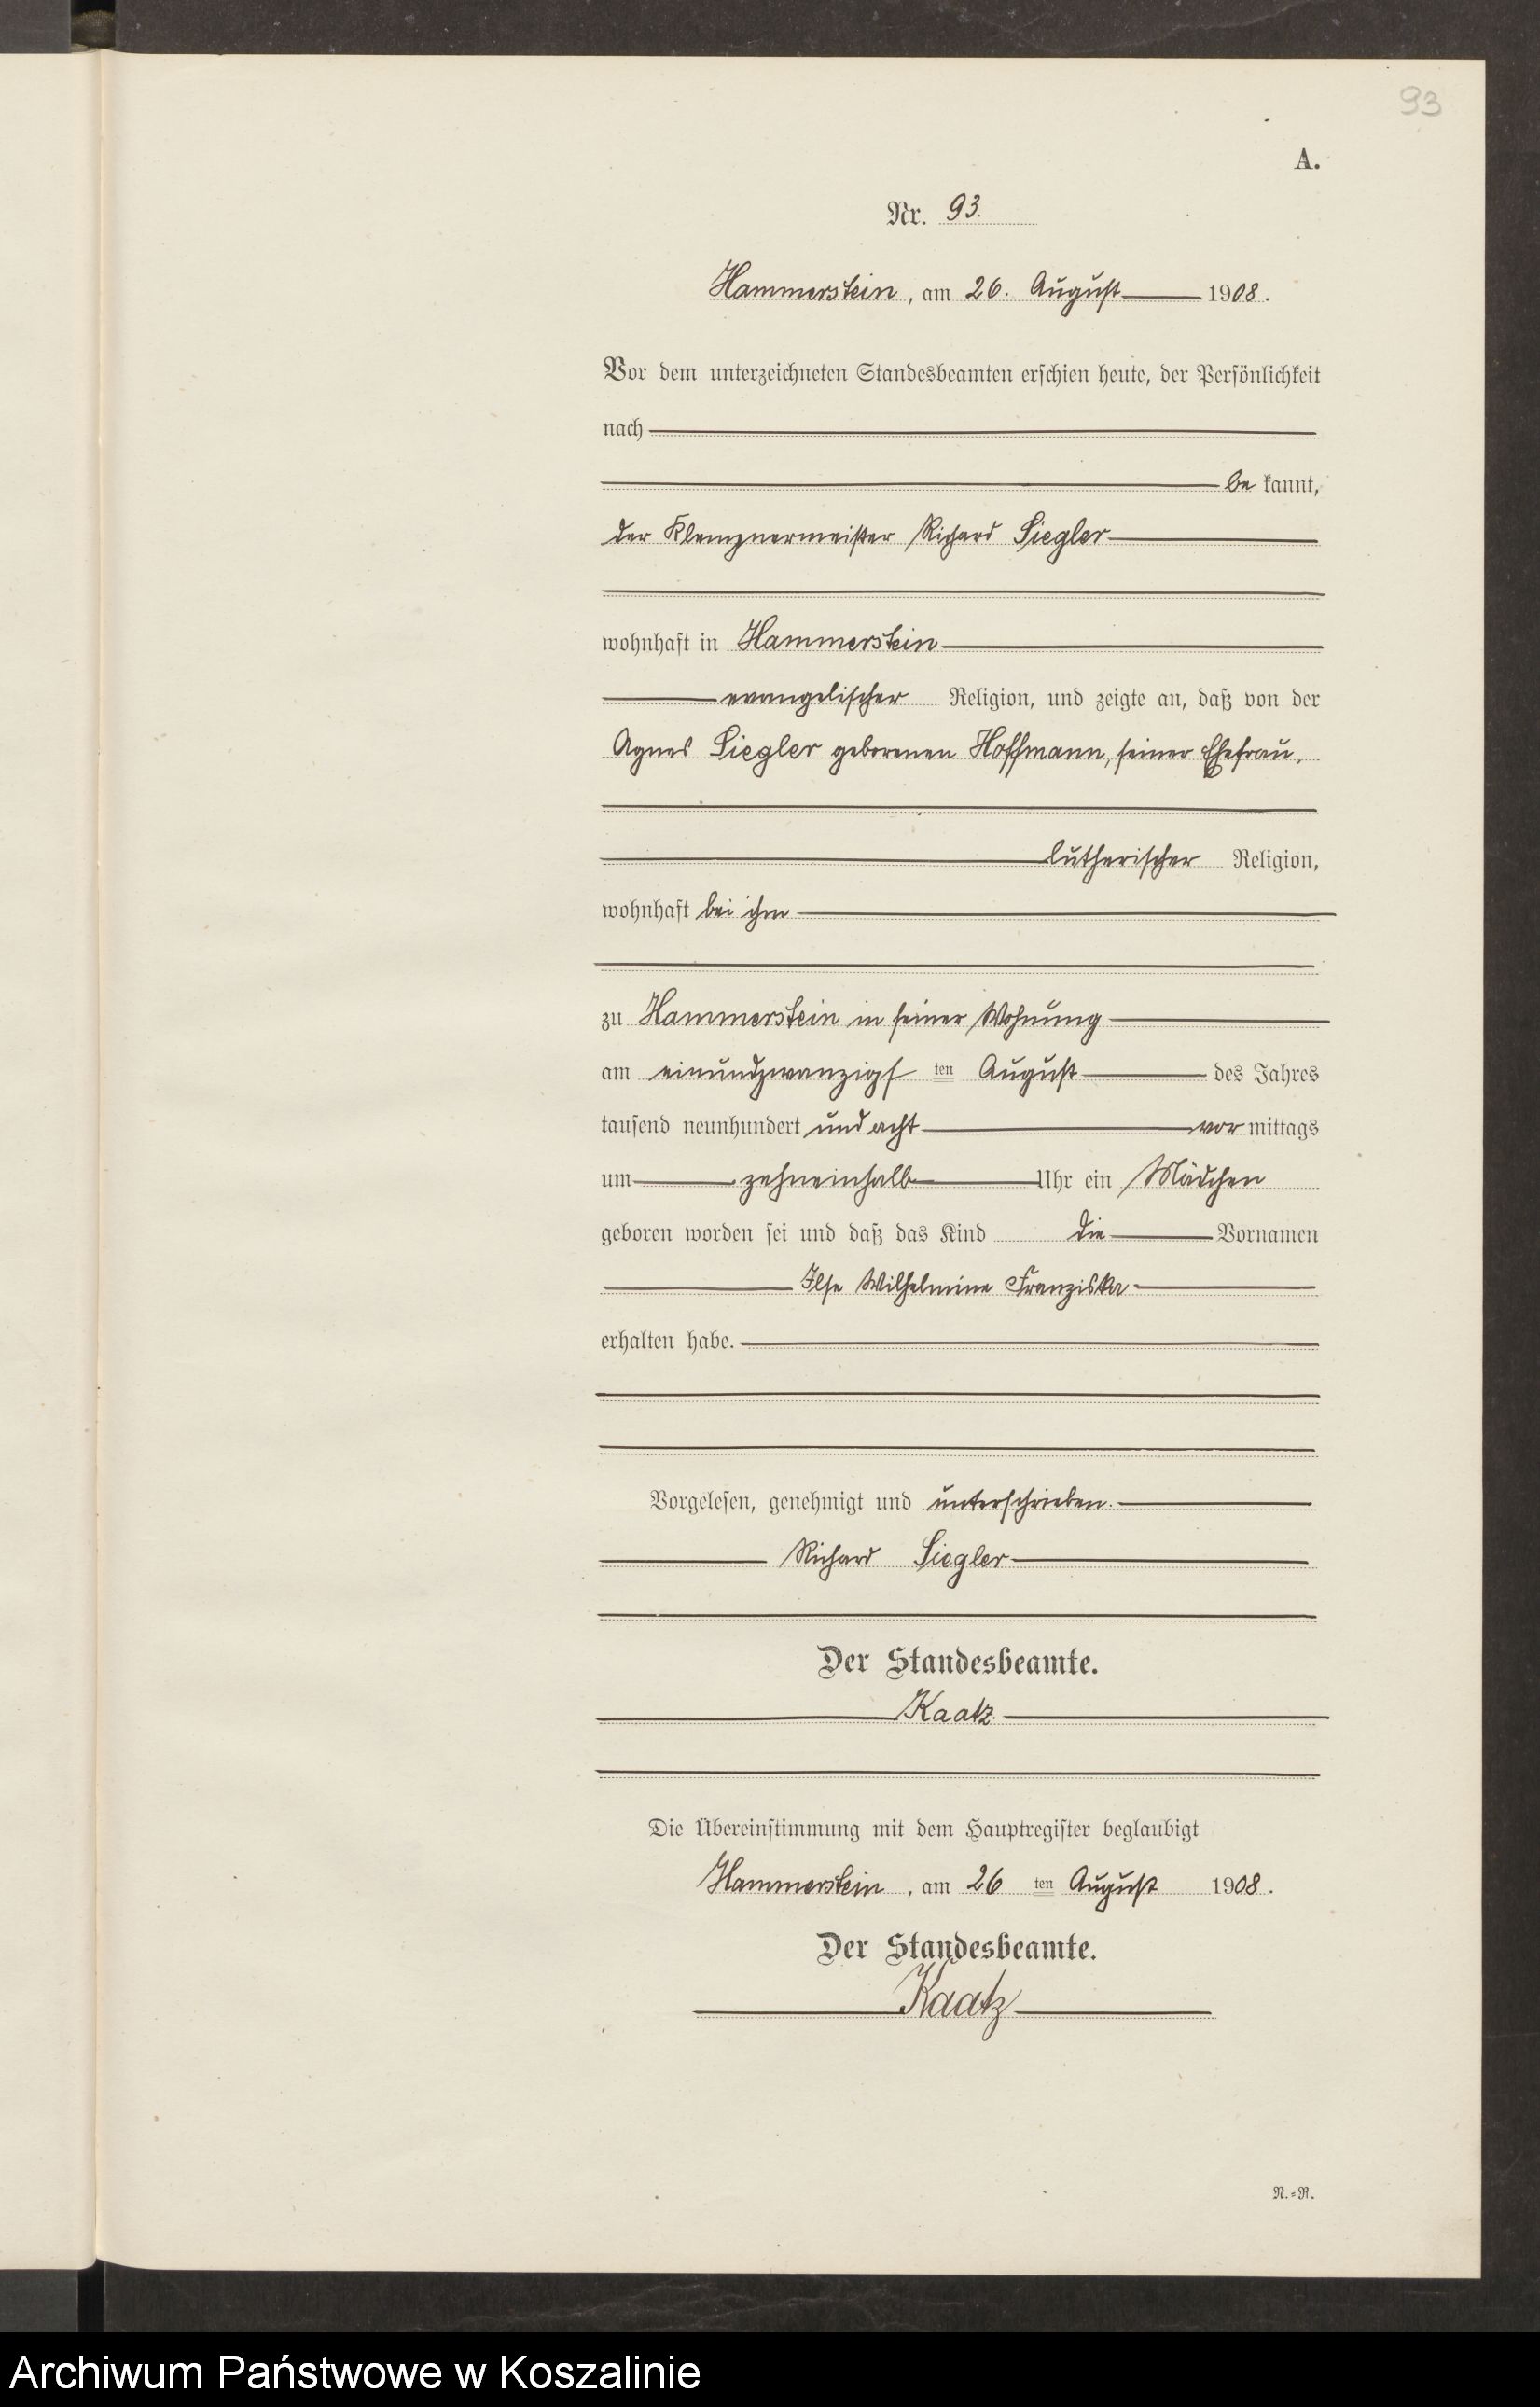 93
A.
Nr. 93.
Hammerstein, am 26. August 1908.
Vor dem unterzeichneten Standesbeamten erschien heute, der Persönlichkeit
nach
be kannt,
der Klempnermeister Richard Siegler
wohnhaft in Hammerstein
evangelischer Religion, und zeigte an, daß von der
Agnes Siegler geborenen Hoffmann, seiner Ehefrau,
lutherischer Religion,
wohnhaft bei ihm
zu Hammerstein in seiner Wohnung
am einundzwanzigs ten August des Jahres
tausend neunhundert und acht vor mittags
um zehneinhalb Uhr ein Mädchen
geboren worden sei und daß das Kind die Vornamen
Ilse Wilhelmine Franziska
erhalten habe.
Vorgelesen, genehmigt und unterschrieben.
Richard Siegler
Der Standesbeamte.
Kaatz.
Die Übereinstimmung mit dem Hauptregister beglaubigt
Hammerstein, am 26 ten August 1908.
Der Standesbeamte.
Kaatz
N.=R.
Archiwum Państwowe w Koszalinie